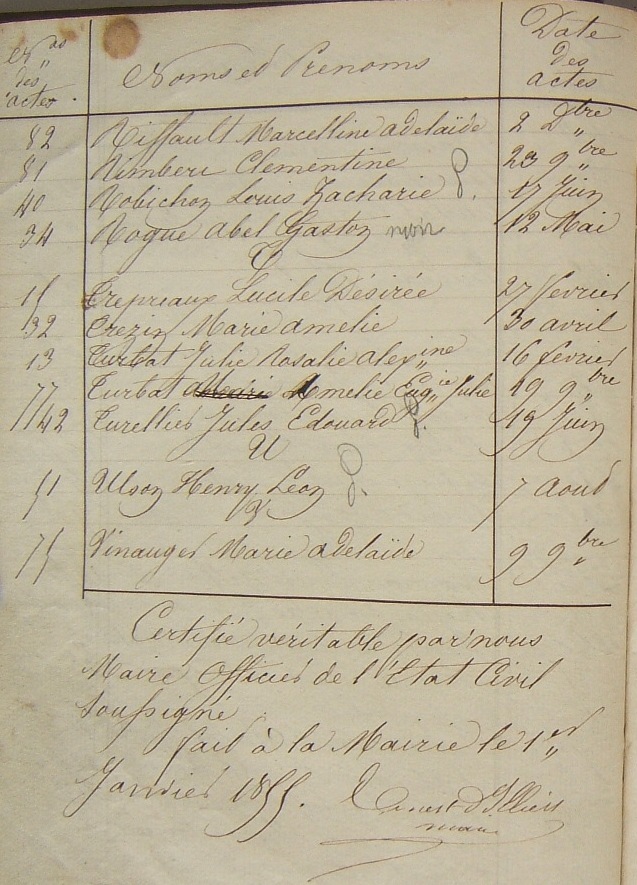 Nos des actes. Noms et Prenoms Date des actes
82 Riffault Marcelline adelaïde 2 Dbre
81 Rimbert Clementine 23 9bre
40 Robichon Louis Zacharie 17 Juin
34 Rogue Abel Gaston 12 Mai
T
15 Trepreaux Lucile Désirée 27 fevrier
32 Trezin Marie amelie 30 avril
13 Turbat Julie Rosalie alexine 16 fevrier
77 Turbat Amelie Eugie Julie 19 9bre
42 Turellier Jules Edouard 19 Juin
U
51 Ulson Henry Leon 7 aout
V
75 Vinauger Marie adelaïde 9 9bre
Certifié véritable par nous
Maire Officier de l'Etat Civil
soussigné
fait à la Mairie le 1er
Janvier 1855. Ernest d'Illiers
maire